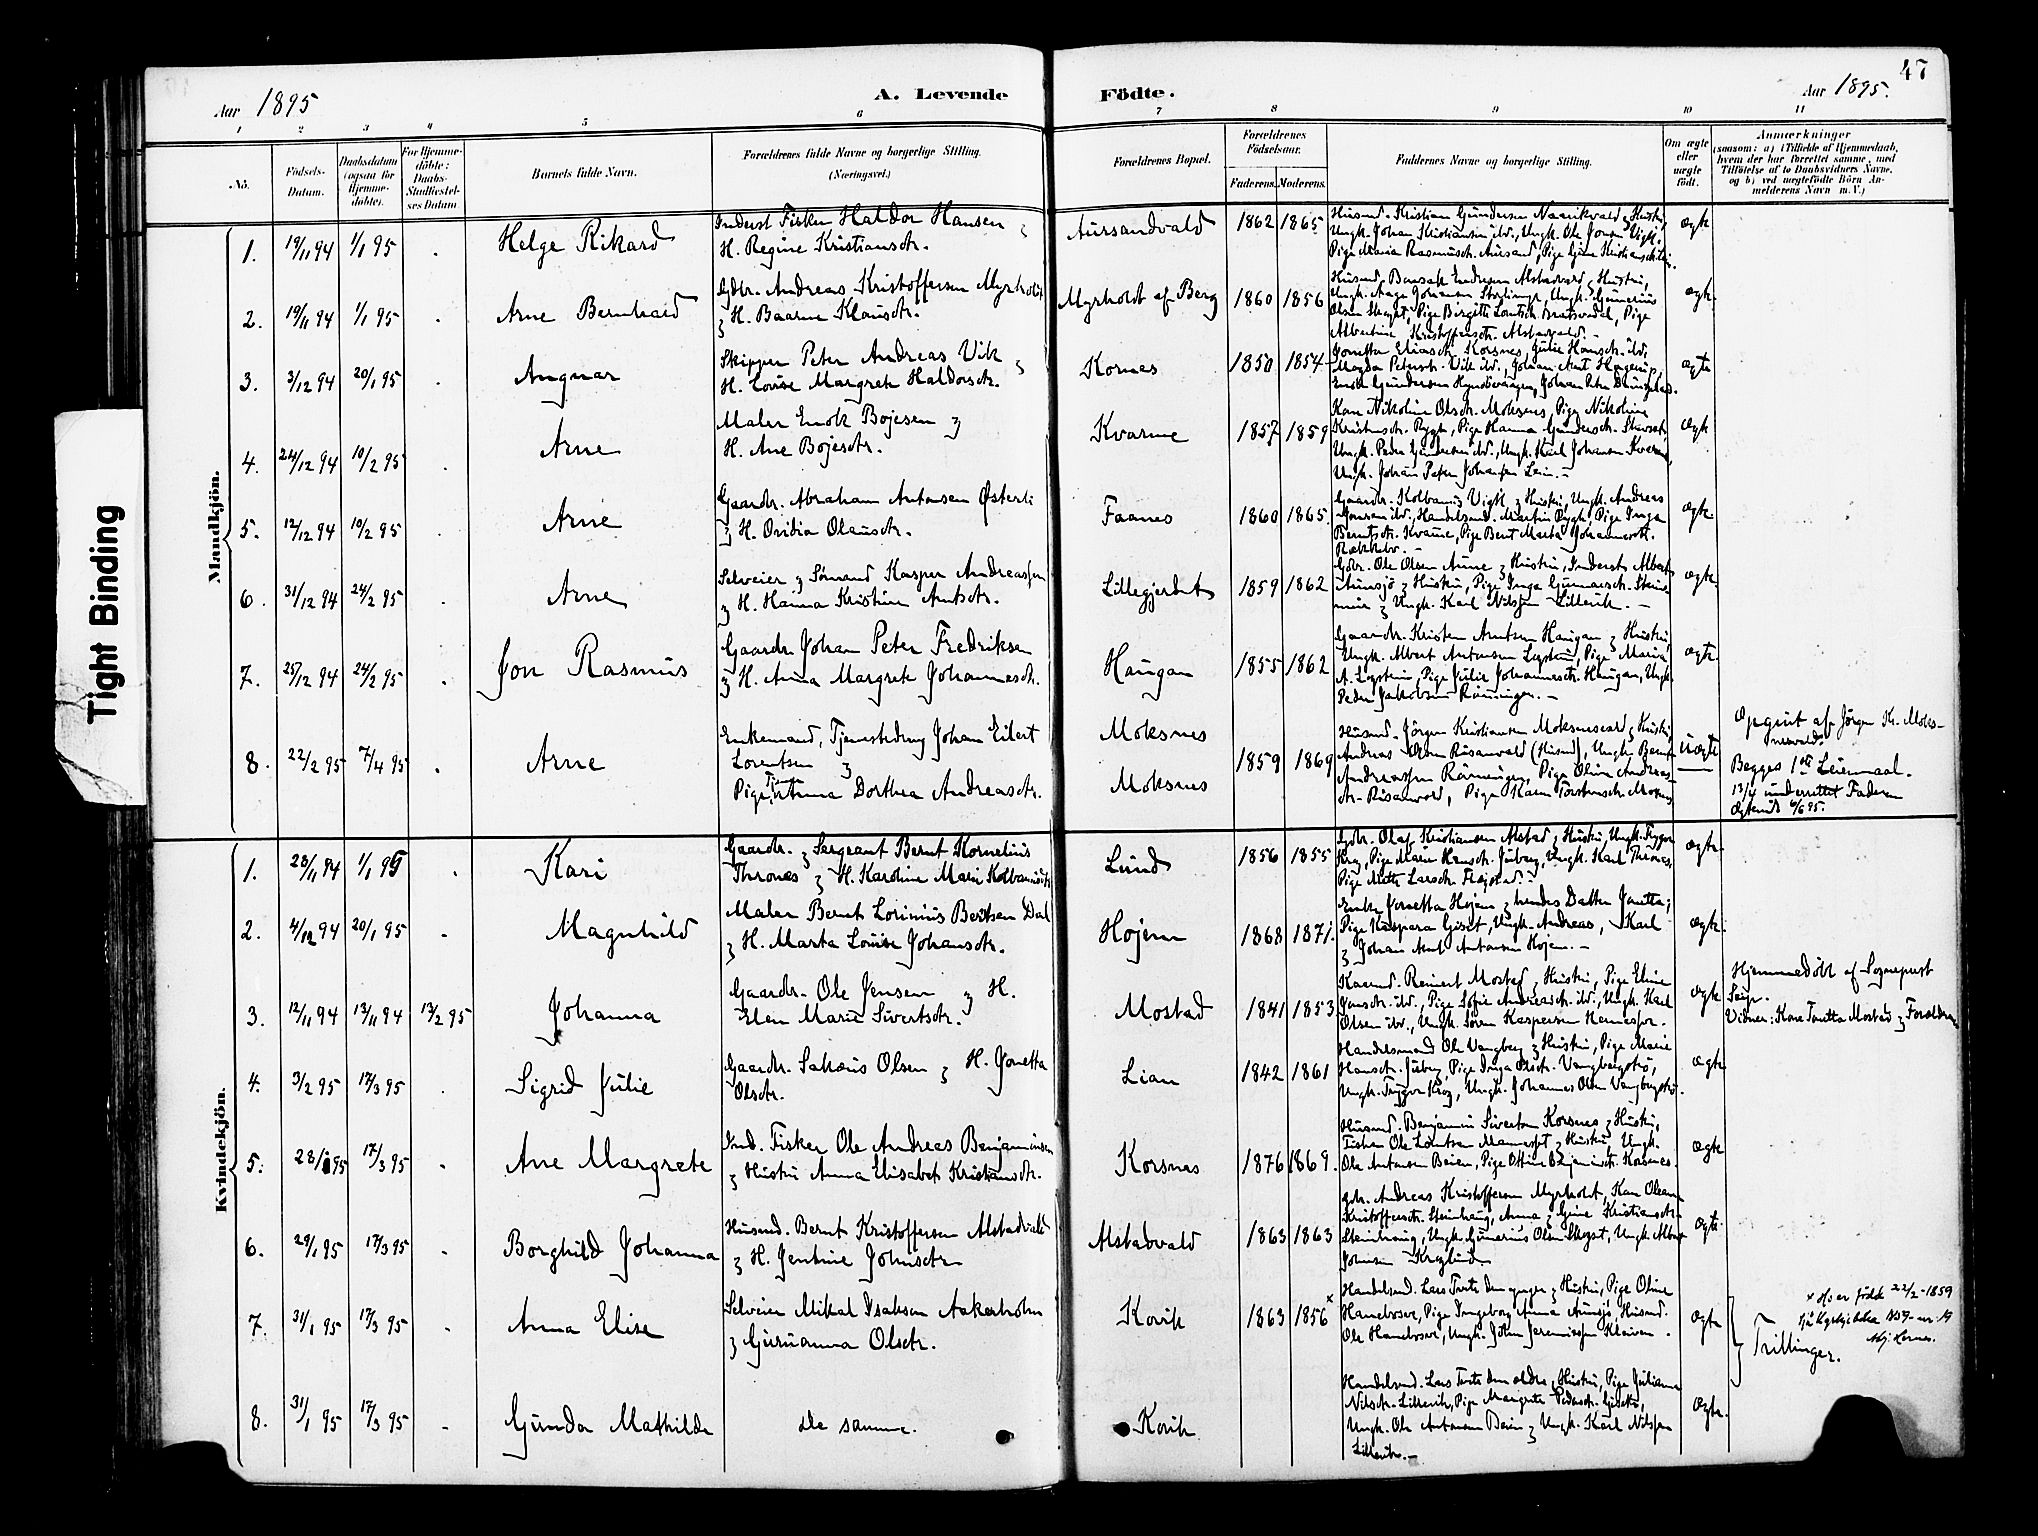 47
Aar 1895
A. Levende
Födte.
Aar 1895.
1 2 3 4 5 6 7 8 9 10 11
No.
Födsels-Datum.
Daabsdatum (ogsaa for Hjemme-döbte).
For Hjemme-döbte: Daabs-Stadfæstel-ses Datum.
Barnets fulde Navn.
Forældrenes fulde Navne og borgerlige Stilling.
(Næringsvei.)
Forældrenes Bopæl.
Forældrenes Födselsaar.
Faderens. Moderens.
Faddernes Navne og borgerlige Stilling.
Om ægte eller uægte födt.
Anmærkninger
(saasom: a) i Tilfælde af Hjemmedaab,
hvem der har forrettet samme, med
Tilföielse af to Daabsvidners Navne,
og b) ved uægtefödte Börn An-
melderens Navn m. V.)
Tight Binding
Mandkjön.
1. 19/11 94 1/1 95 Helge Rikard
Inderst Fisker Haldor Hansen &
H. Regine Kristiansdtr.
Aursandvald 1862 1865
Husmd. Kristian Gundersen Naavikvald & Hustru,
Ungk. Johan Kristiansen ibd., Ungk. Ole Jonsen Vigt,
Pige Maria Rasmusdtr. Aursand, Pige Gjine Kristiansdtr.
ægte
2. 19/11 94 1/1 95 Arne Bernhard
Gdbr. Andreas Kristoffersen Myrholdt
& H. Baarine Klausdtr.
Myrholdt af Berg 1860 1856
Olsen Skogset, Pige Birgitte
Albertine Kristoffersdtr. Alstadvald. -
ægte
3. 3/12 94 20/1 95 Angnar
Skipper Peter Andreas Vik &
H. Lovise Margrete Haldorsdtr.
Kornes 1850 1854
Jonetta Eliasdtr. Korsnes, Julie Hansdtr. ibd.,
Magda Petersdtr. Vik ibd., Johan
ægte
4. 24/12 94 10/2 95 Arne
Maler Enok Bojesen &
H. Ane Bojesdtr.
Kvarme 1857 1859
Kone Nikoline Olsdtr. Moksnes, Pige Nikoline
Kristensdtr. Rygh, Pige Hanna Gundersdtr.
Ungk. Peder Gundersen ibd., Ungk. Karl Johansen Kvarme,
Ungk. Johan Peter Johansen Lein. -
ægte
5. 12/12 94 10/2 95 Arne
Gaardbr. Abraham Antonsen Østerli
& H. Ovidia Olausdtr.
Faanes 1860 1865.
Gaardbr. Kolbanus Vigtil & Hustru, Ungk. Andreas
Jonsen ibd., Handelsmd. Martin Rygh, Pige Inga
Berntsdtr. Kvarme, Pige Berit Marta Johannesdtr.
ægte
6. 31/12 94 24/2 95 Arne
Selveier & Sömand Kasper Andreassen
& H. Hanna Kristine Arntsdtr.
Lillegjerdet 1859 1862
Gdbr. Ole Olsen Aune & Hustru, Inderst Albert
Aunsjö & Hustru, Pige Inga Gunnarsdtr. Stene
& Ungk. Karl Nilsen Lillevik. -
ægte
7. 25/12 94 24/2 95 Jon Rasmus
Gaardbr. Johan Peter Fredriksen
& H. Anna Margrete Johannesdtr.
Haugan 1855 1862
Gaardbr. Kristen Arntsen Haugan & Hustru,
Ungk. Albert Antonsen Legstein, Pige Maria
A. Legstein, Pige Julie Johannesdtr. Haugan, Ungk.
Peder Jakobsen Rönningen. -
ægte
8. 22/2 95 7/4 95 Arne
Enkemand, Tjenestedreng Johan Eilert
Lorentsen &
Pige Tjener Anna Dorthea Andreasdtr.
Moksnes
Moksnes
1859 1869
Husmd. Jörgen Kristiansen Moksnesvald & Hustru,
Andreas Olsen Risanvald (Husmd), Ungk. Bernt
Andreassen Rönningen, Pige Oline Andreas-
dtr. Risanvald, Pige Karen Torstensdtr. Moksnes
uægte
Opgivit af Jörgen Kr. Moks-
nesvald.
Begges 1ste Leiermaal.
13/4 underrettet Faderen
Kvindekjön.
1. 23/11 94 1/1 95 Kari
Gaardbr. & Sergeant Bernt Kornelius
Thrones & H. Karoline Marie Kolbanusdtr
Lund 1856 1855
Gdbr. Olaf Kristiansen Alstad & Hustru, Ungk. Trygve
Krog, Pige Marie Hansdtr. Juberg, Ungk. Karl Thrones,
Pige Mette Larsdtr.
ægte
2. 4/12 94 20/1 95 Magnhild
Maler Bernt Lorinius Berntsen Dal
& H. Marta Louise Johansdtr.
Höjem 1868 1871.
Enke Jonetta Höjem & hendes Datter Janetta;
Pige Kaspara Giset, Ungk. Andreas, Karl
& Johan Arnt Antonsen Höjem. -
ægte
3. 12/11 94 13/11 94 13/2 95 Johanna
Gaardbr. Ole Jensen & H.
Elen Marie Sivertsdtr.
Mostad 1841 1853
Kaarmd. Reinert Mostad & Hustru, Pige Eline
Jonsdtr. ibd., Pige Sofie Andreasdtr. ibd., Ungk. Karl
Olsen ibd., Ungk. Sören Kaspersen
ægte
Hjemmedöbt af Sognepræst
Vidner: Kone Jonetta Mostad & Forældrene
4. 3/2 95 17/3 95 Sigrid Julie
Gaardbr. Sakæus Olsen & H. Jonetta
Olsdtr.
Lian 1842 1861
Handelsmand Ole Vangberg & Hustru, Pige Marie
Hansdtr. Juberg, Pige Inga Olsdtr. Vangbergstö,
Ungk. Trygve Krog, Ungk. Johannes Olsen Vangbergstö.
ægte
5. 28/1 95 17/3 95 Ane Margrete
Ind. Fisker Ole Andreas Benjaminsen
& Hustru Anna Elisabet Kristiansdtr.
Korsnes 1876 1869.
Husmd. Benjamin Sivertsen Korsnes & Hustru,
Fisker Ole Lorntsen & Hustru, Ungk.
Ole Antonsen Beien, Pige Ottine Benjaminsdtr. Korsnes.
ægte
6. 29/1 95 17/3 95 Borghild Johanna
Husmd. Bernt Kristoffersen Alstadvald
& H. Jentine Johnsdtr
Alstadvald 1863 1863
Gdbr. Andreas Kristoffersen Myrholdt, Kone Oleanna
Kristoffersdtr. Steinhaug, Anna & Gine Kristiansdtr.
Steinhaug, Ungk. Gunerius Olsen Skogset, Ungk. Albert
Johnsen
ægte
7. 31/1 95 17/3 95 Anna Elise
Selveier Mikal Isaksen Aakerholm
& Gjeruanna Olsdtr.
Korik 1863 1856 ×
Handelsmd. Lars Tvete den yngre & Hustru, Pige Oline
Hamelvoser, Pige Ingeborg Anna Aunsjö, Husmd.
Ole Hamelvoser, Ungk. John Jeremiassen Kleiven.
ægte
× H. er född 22/2-1859
Trillinger.
8. 31/1 95 17/3 95 Gunda Mathilde
de samme.
Korik
Handelsmd. Lars Tvete den ældre & Hustru, Pige Julianna
Nilsdtr. Lillevik, Pige Margrete Pedersdtr.
Ungk. Ole Antonsen Beien & Ungk. Karl Nilsen
Lillevik. -
ægte.